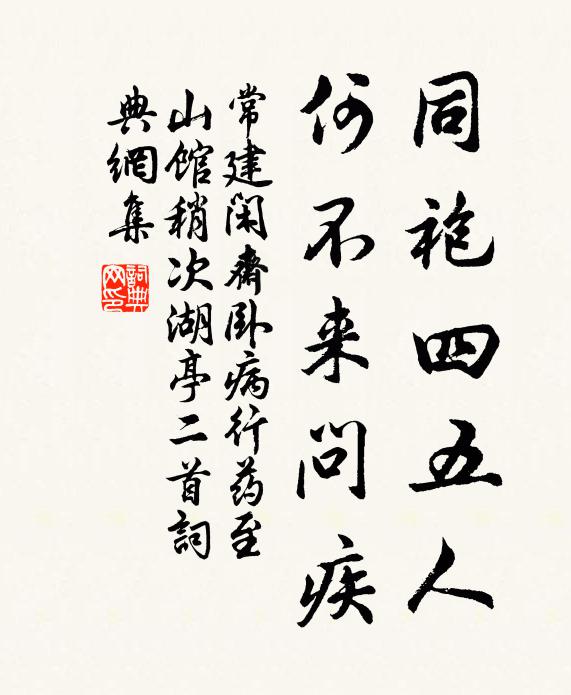 同袍四五人
何不来問疾
常建閑齋卧病行药至
山館稍次湖亭二首詞
典網集
詞典网印